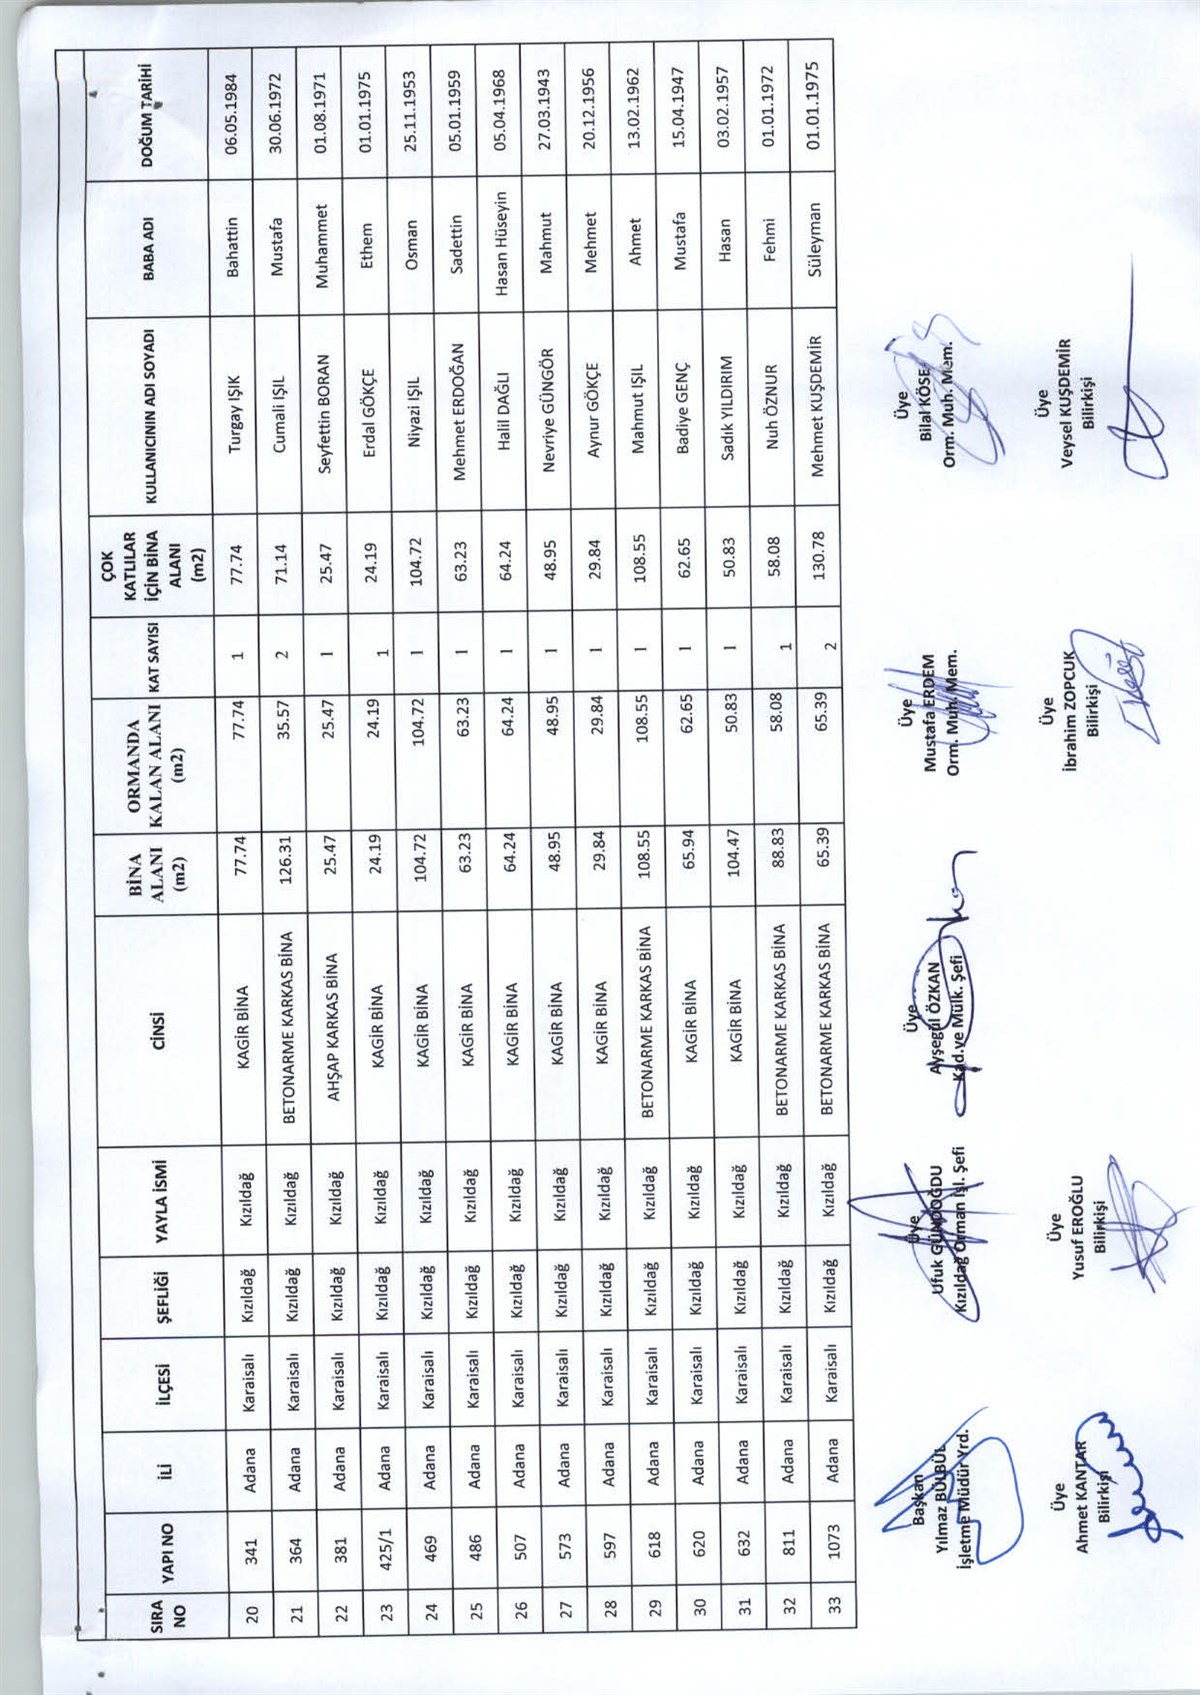 SIRA NO YAPI NO İLİ İLÇESİ ŞEFLİĞİ YAYLA İSMİ CİNSİ BİNA ALANI (m2) ORMANDA KALAN ALANI (m2) KAT SAYISI ÇOK KATLILAR İÇİN BİNA ALANI (m2) KULLANICININ ADI SOYADI BABA ADI DOĞUM TARİHİ
20 341 Adana Karaisalı Kızıldağ Kızıldağ KAGİR BİNA 77.74 77.74 1 77.74 Turgay IŞIK Bahattin 06.05.1984
21 364 Adana Karaisalı Kızıldağ Kızıldağ BETONARME KARKAS BİNA 126.31 35.57 2 71.14 Cumali IŞIL Mustafa 30.06.1972
22 381 Adana Karaisalı Kızıldağ Kızıldağ AHŞAP KARKAS BİNA 25.47 25.47 1 25.47 Seyfettin BORAN Muhammet 01.08.1971
23 425/1 Adana Karaisalı Kızıldağ Kızıldağ KAGİR BİNA 24.19 24.19 1 24.19 Erdal GÖKÇE Ethem 01.01.1975
24 469 Adana Karaisalı Kızıldağ Kızıldağ KAGİR BİNA 104.72 104.72 1 104.72 Niyazi IŞIL Osman 25.11.1953
25 486 Adana Karaisalı Kızıldağ Kızıldağ KAGİR BİNA 63.23 63.23 1 63.23 Mehmet ERDOĞAN Sadettin 05.01.1959
26 507 Adana Karaisalı Kızıldağ Kızıldağ KAGİR BİNA 64.24 64.24 1 64.24 Halil DAĞLI Hasan Hüseyin 05.04.1968
27 573 Adana Karaisalı Kızıldağ Kızıldağ KAGİR BİNA 48.95 48.95 1 48.95 Nevriye GÜNGÖR Mahmut 27.03.1943
28 597 Adana Karaisalı Kızıldağ Kızıldağ KAGİR BİNA 29.84 29.84 1 29.84 Aynur GÖKÇE Mehmet 20.12.1956
29 618 Adana Karaisalı Kızıldağ Kızıldağ BETONARME KARKAS BİNA 108.55 108.55 1 108.55 Mahmut IŞIL Ahmet 13.02.1962
30 620 Adana Karaisalı Kızıldağ Kızıldağ KAGİR BİNA 65.94 62.65 1 62.65 Badiye GENÇ Mustafa 15.04.1947
31 632 Adana Karaisalı Kızıldağ Kızıldağ KAGİR BİNA 104.47 50.83 1 50.83 Sadık YILDIRIM Hasan 03.02.1957
32 811 Adana Karaisalı Kızıldağ Kızıldağ BETONARME KARKAS BİNA 88.83 58.08 1 58.08 Nuh ÖZNUR Fehmi 01.01.1972
33 1073 Adana Karaisalı Kızıldağ Kızıldağ BETONARME KARKAS BİNA 65.39 65.39 2 130.78 Mehmet KUŞDEMİR Süleyman 01.01.1975
Başkan Üye Üye Üye Üye
Yılmaz BÜLBÜL Ufuk GÜNDOĞDU Ayşegül ÖZKAN Mustafa ERDEM Bilal KÖSE
İşletme Müdür Yrd. Kızıldağ Orman İşl. Şefi Kad.ve Mülk. Şefi Orm. Muh. Mem. Orm. Muh. Mem.
Üye Üye Üye Üye
Ahmet KANTAR Yusuf EROĞLU İbrahim ZOPCUK Veysel KUŞDEMİR
Bilirkişi Bilirkişi Bilirkişi Bilirkişi